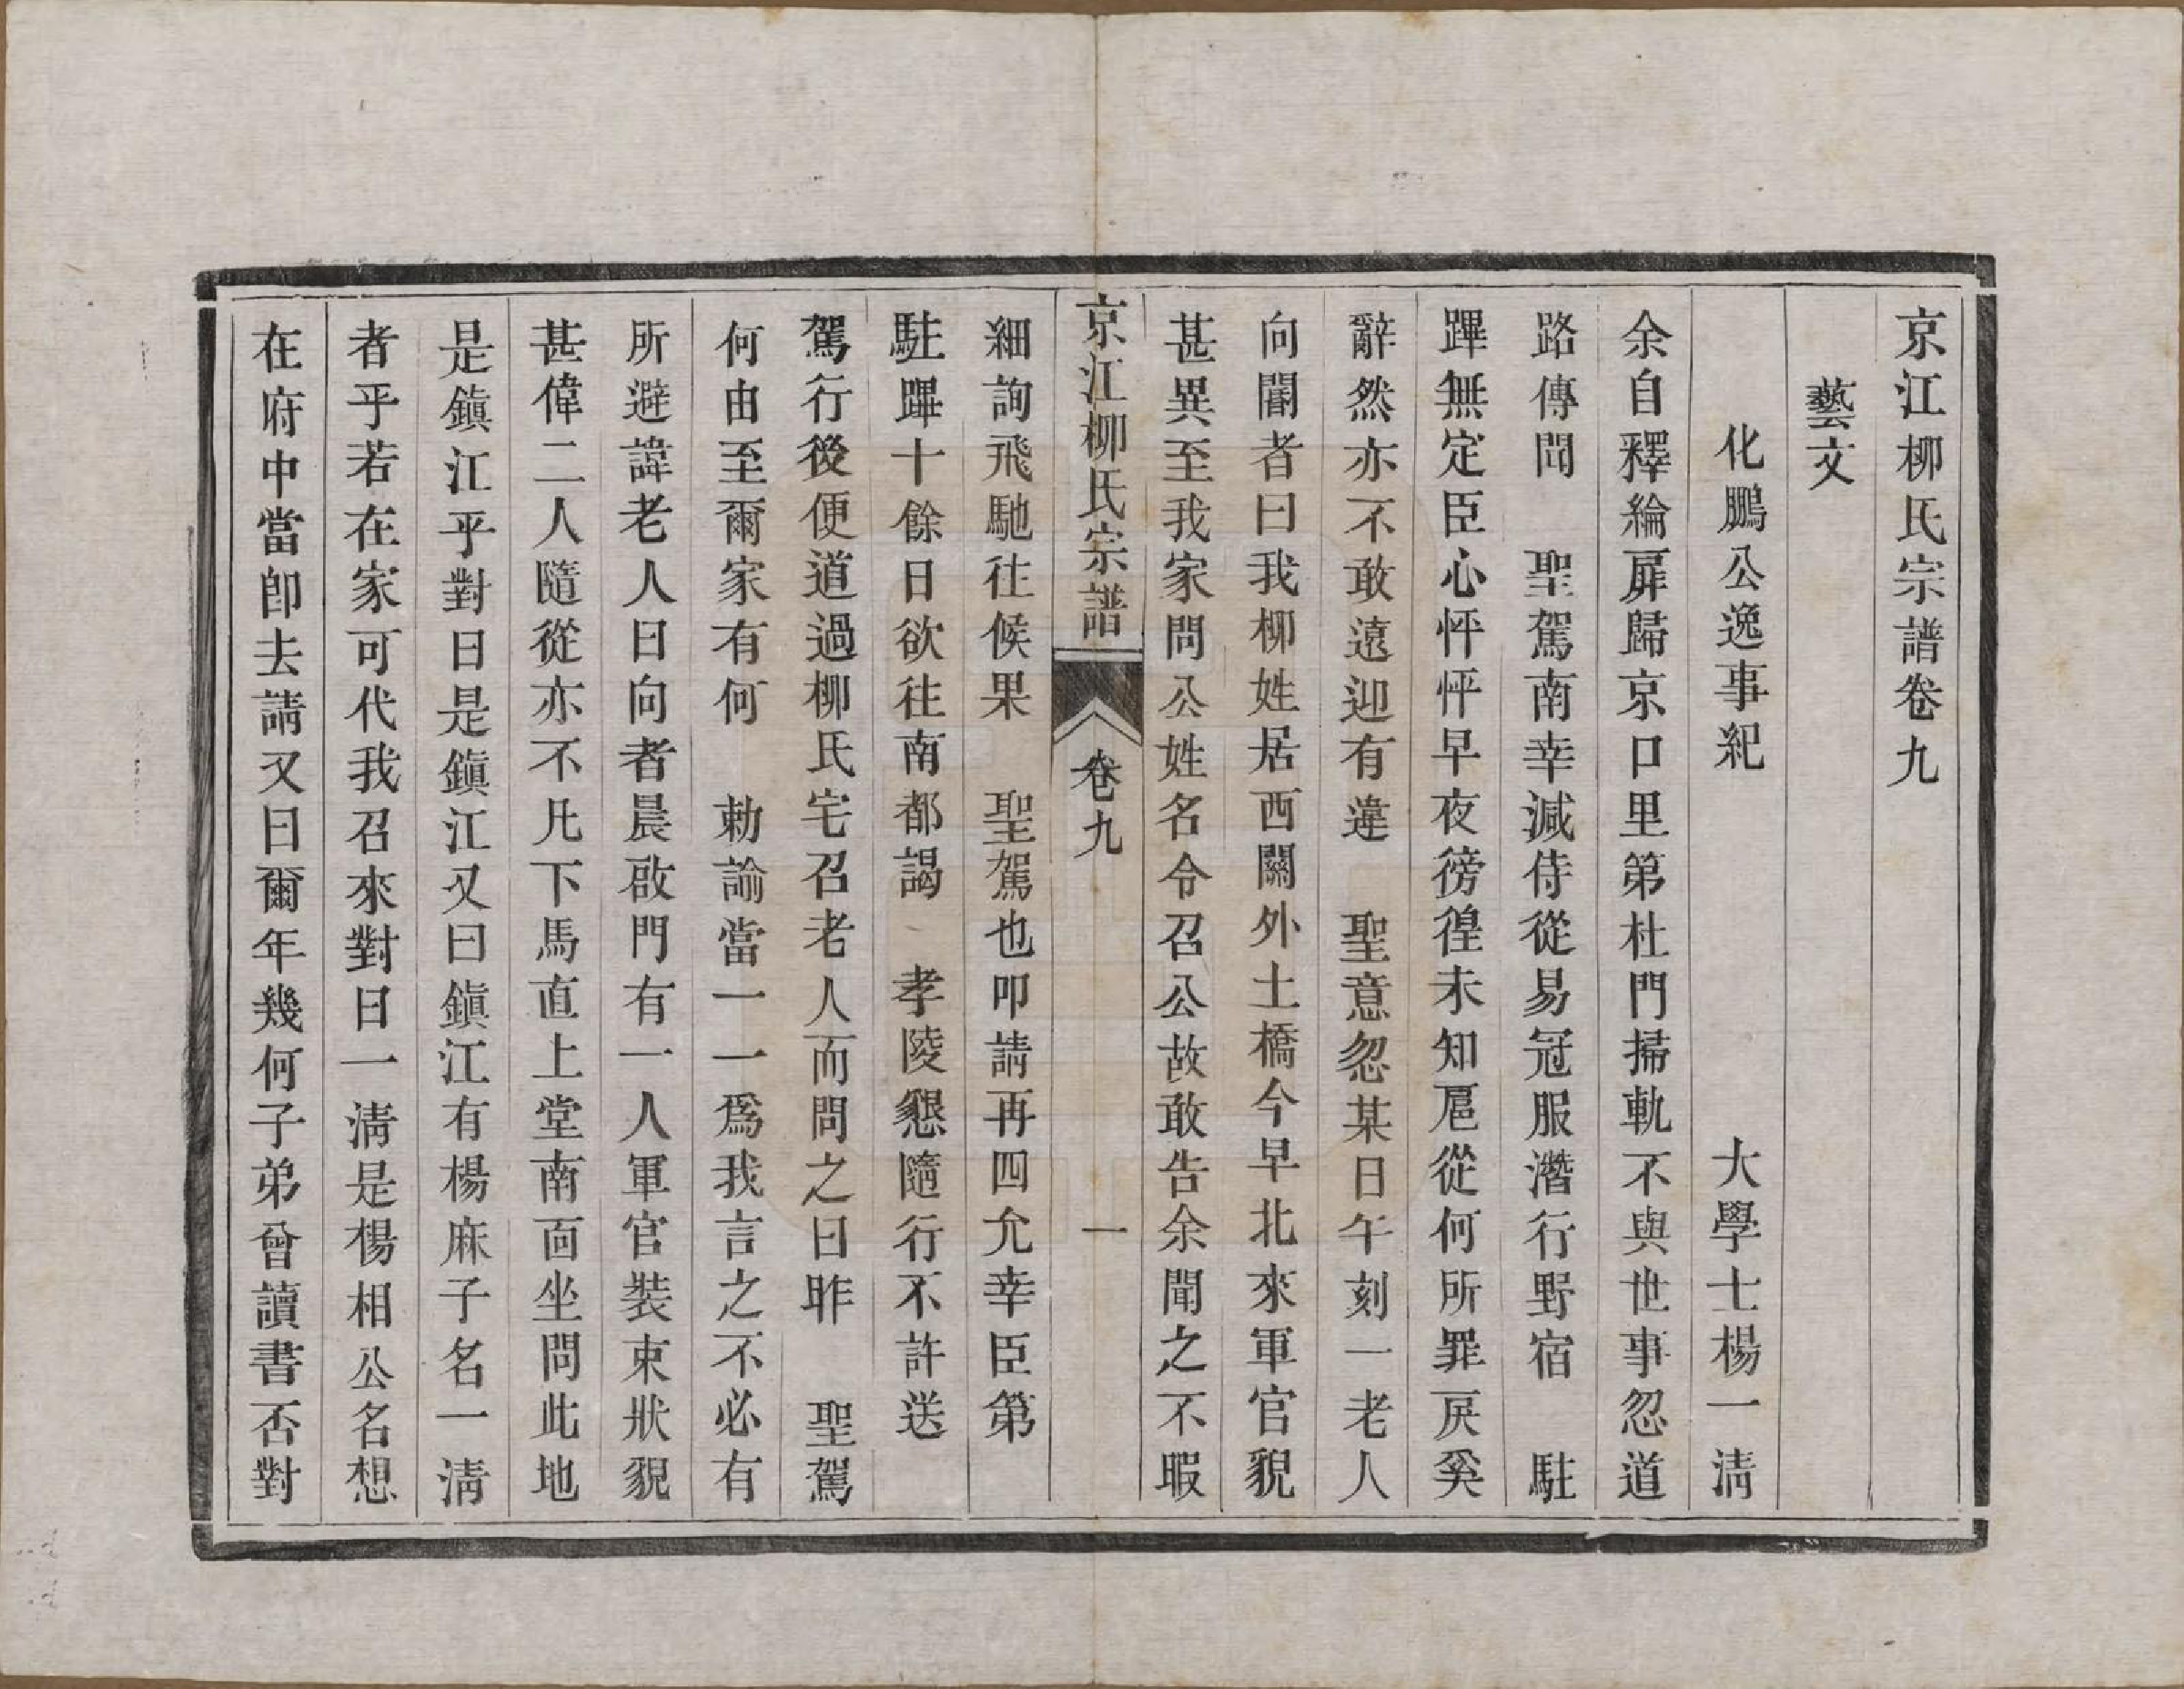 京江柳氏宗譜卷九
藝文
化鵬公逸事紀　大學士楊一淸
余自釋綸扉歸京口里第杜門掃軌不與世事忽道
路傳聞　聖駕南幸減侍從易冠服潛行野宿　駐
蹕無定臣心怦怦早夜徬徨未知扈從何所罪戾奚
辭然亦不敢遠迎有違　聖意忽某日午刻一老人
向閽者曰我柳姓居西關外土橋今早北來軍官貌
甚異至我家問公姓名令召公故敢告余聞之不暇
京江柳氏宗譜　卷九　一
細詢飛馳往候果　聖駕也叩請再四允幸臣第
駐蹕十餘日欲往南都謁　孝陵懇隨行不許送
駕行後便道過柳氏宅召老人而問之曰昨　聖駕
何由至爾家有何　勅諭當一一爲我言之不必有
所避諱老人曰向者晨啟門有一人軍官裝束狀貌
甚偉二人隨從亦不凡下馬直上堂南面坐問此地
是鎭江乎對曰是鎭江又曰鎭江有楊麻子名一淸
者乎若在家可代我召來對曰一淸是楊相公名想
在府中當卽去請又曰爾年幾何子弟曾讀書否對